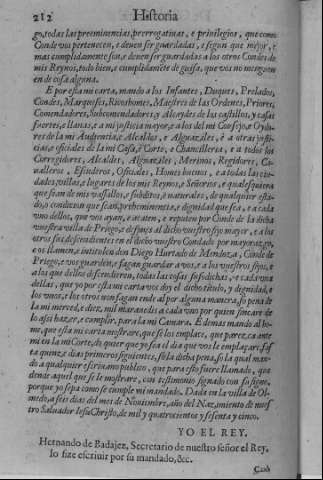 212 Historia
go, todas las preeminencias, prerrogatinas, e priuilegios, que como
Conde vos pertenecen, e deuen ser guardadas, e segun que mejor, e
mas cumplidamente son, e deuen ser guardados a los otros Condes de
mis Reynos, todo bien, e cumplidamẽte de guisa, que vos no menguen
en de cosa alguna.
E por esta mi carta, mando a los Infantes, Duques, Prelados,
Condes, Marqueses, Ricoshomes, Maestres de las Ordenes, Priores,
Comendadores, Subcomendadores, y Alcaydes de los castillos, y casas
fuertes, e llanas, e a mi justicia mayor, e a los del mi Consejo, e Oydo-
res de la mi Audiencia, e Alcaldes, e Alguaziles, e a otras justi-
cias, e oficiales de la mi Casa, e Corte, e Chancilleria, e a todos los
Corregidores, Alcaldes, Alguaziles, Merinos, Regidores, Ca-
ualleros, Escuderos, Oficiales, Homes buenos, e a todas las ciu-
dades, villas, e lugares de los mis Reynos, e Señorios, e qualesquiera
que sean de mis vassallos, e subditos, e naturales, de qualquier esta-
do, o condicion que sean, preheminencia, e dignidad que sea, e a cada
vno dellos, que vos ayan, e acaten, e reputen por Conde de la dicha
vuestra villa de Priego, e despues al dicho vuestro fijo mayor, e a los
otros sus descendientes en el dicho vuestro Condado por mayorazgo,
e os llamen, e intitulen don Diego Hurtado de Mendoza, Conde de
Priego, e vos guarden, e fagan guardar a vos, e a los vuestros fijos, e
a los que dellos descendieren, todas las cosas susodichas, e cada vna
dellas, que yo por esta mi carta vos doy el dicho titulo, y dignidad, e
los vnos, e los otros non fagan ende al por alguna manera, so pena de
la mi merced, e diez mil marauedis a cada vno por quien fincare de
lo assi hazer, e cumplir, para la mi Camara. E demas mando al ho-
me, que esta mi carta mostrare, que los emplace, que parezcan ante
mi en la mi Corte, do quier que yo sea el dia que vos le emplaçare, fas
ta quinze dias primeros siguientes, so la dicha pena, so la qual man-
do a qualquier escriuano publico, que para esto fuere llamado, que
dende aquel que se le mostrare, con testimonio signado con su signo,
porque yo sepa como se cumple mi mandado. Dada en la villa de Ol-
medo, a seis dias del mes de Nouiembre, año del Nazimiento de nues-
tro Saluador Iesu Christo, de mil y quatrocientos y sesenta y cinco.
YO EL REY.
Hernando de Badajez, Secretario de nuestro señor el Rey,
lo fize escriuir por su mandado, &c.